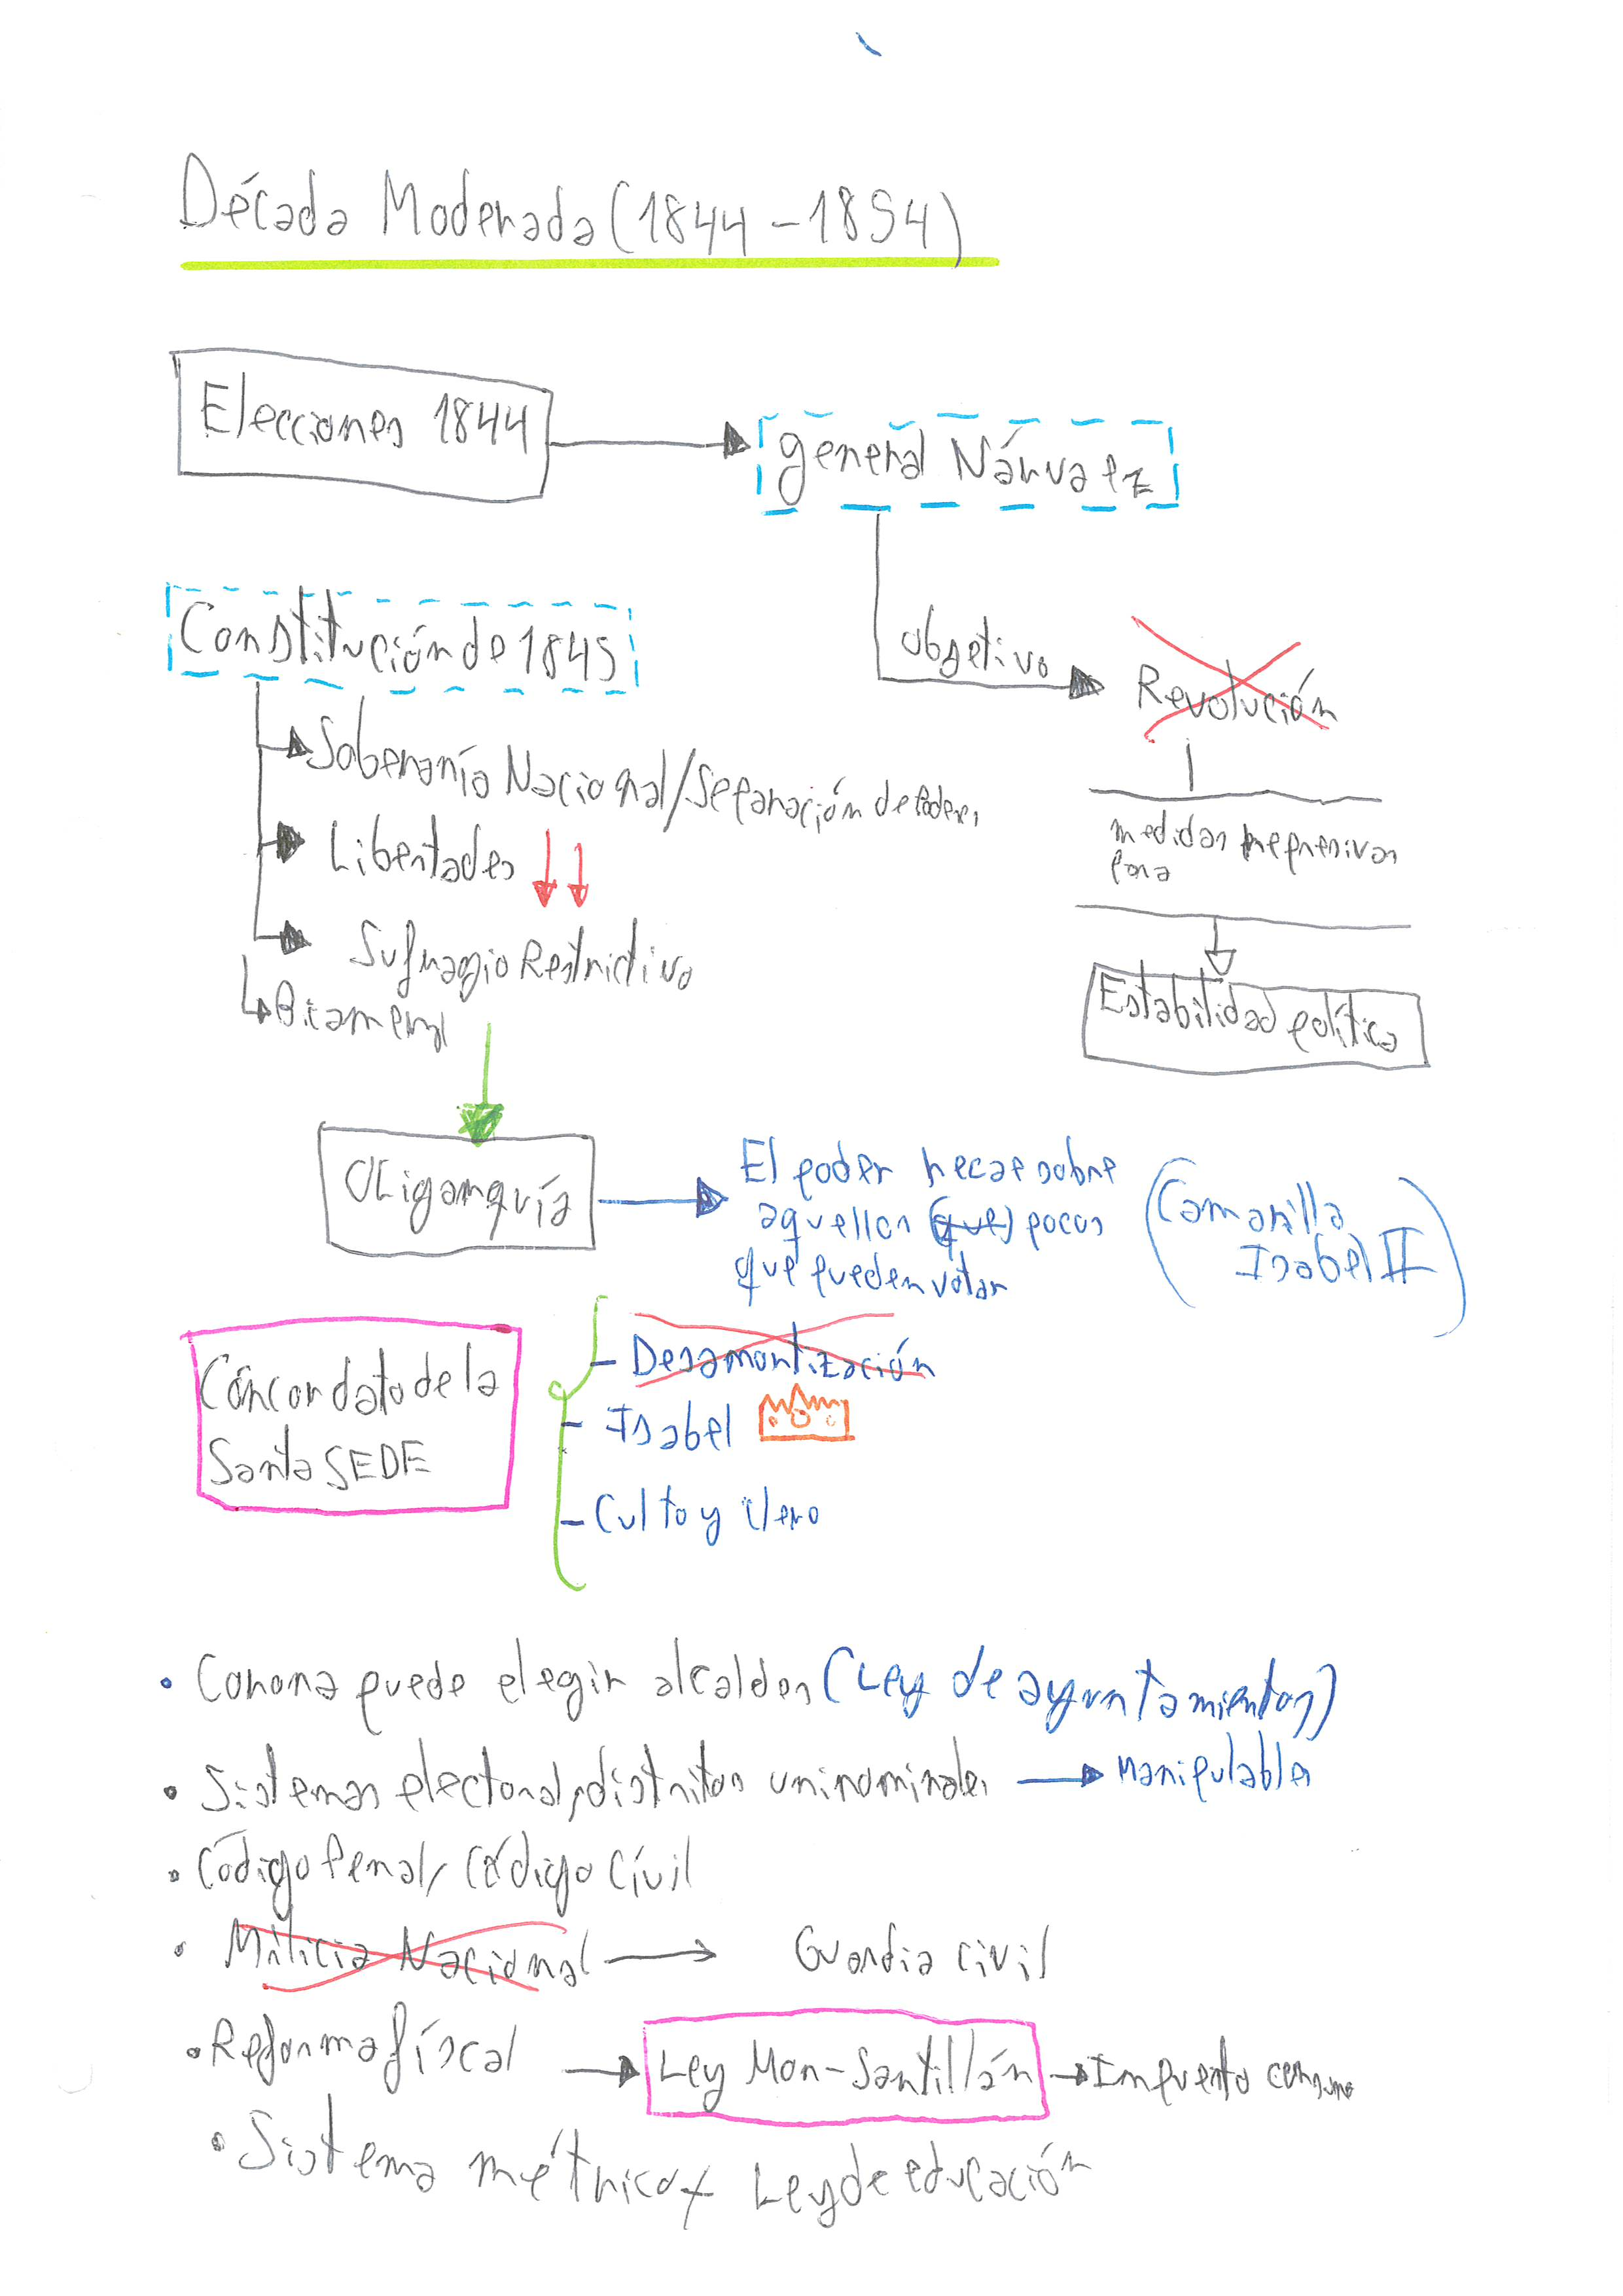 Década Moderada (1844-1854)
Elecciones 1844
general Nárvaez
Constitución de 1845
objetivo
Revolución
Soberanía Nacional/Separación de Poderes
Libertades
medidas represivas
para
Sufragio Restrictivo
Bicameral
Estabilidad política
Oligarquía
El poder recae sobre
aquellos (que) pocos
que pueden votar
(Camarilla
Isabel II)
Cóncordato de la
Santa SEDE
- Desamortización
- Isabel
- Culto y clero
• Corona puede elegir alcaldes (Ley de ayuntamientos)
• Sistemas electoral, distritos uninominales → Manipulables
• Código Penal, Código Cívil
• Milicia Nacional → Guardia civil
• Reforma físcal → Ley Mon-Santillán → Impuesto consumo
• Sistema métrico y Ley de educación